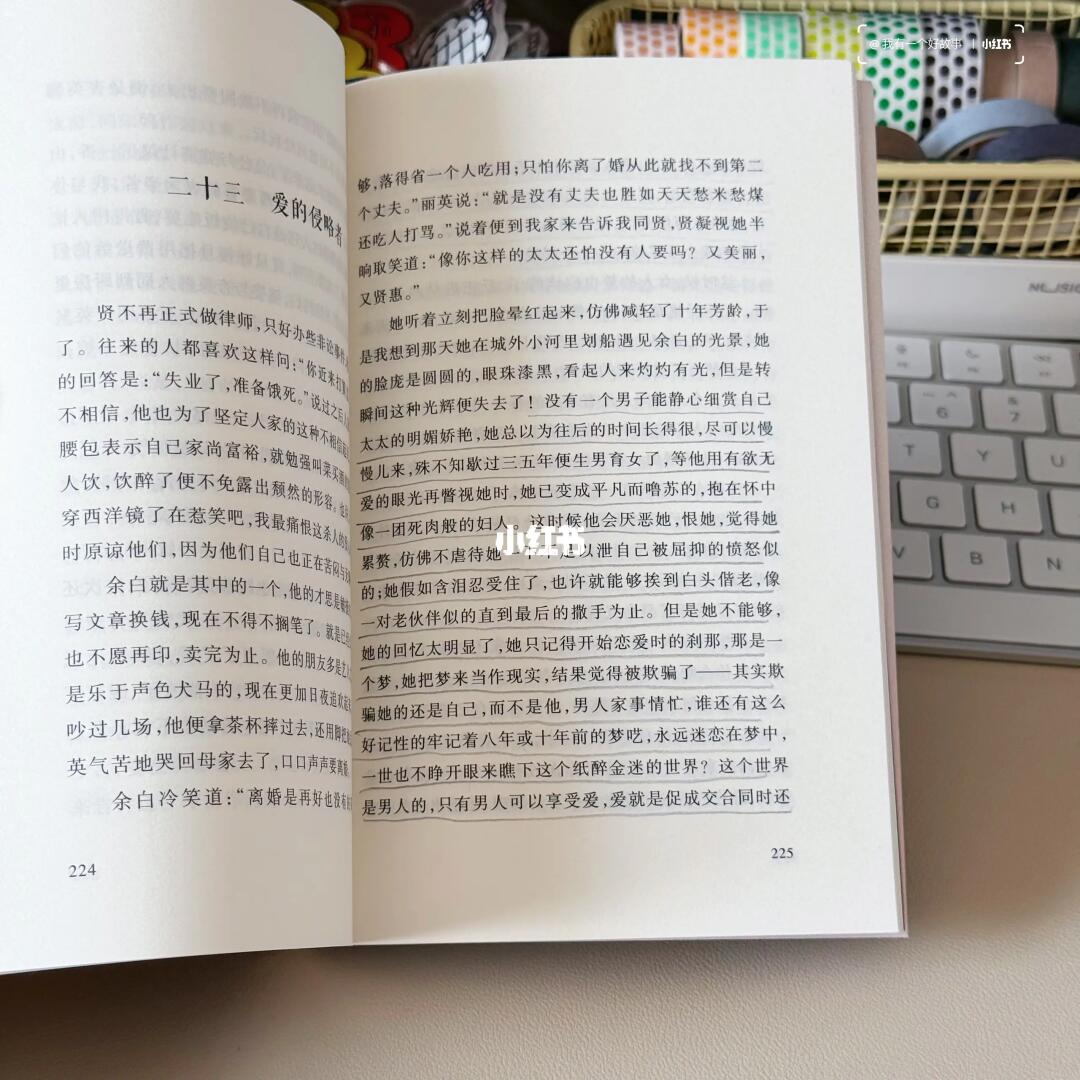 @我有一个好故事 | 小红书
二十三 爱的侵略者
贤不再正式做律师，只好办些非讼事件
了。往来的人都喜欢这样问：“你近来打
的回答是：“失业了，准备饿死。”说过之后
不相信，他也为了坚定人家的这种不相信
腰包表示自己家尚富裕，就勉强叫菜买酒
人饮，饮醉了便不免露出颓然的形容。
穿西洋镜了在惹笑吧，我最痛恨这杀人的
时原谅他们，因为他们自己也正在苦闷与
余白就是其中的一个，他的才思是
写文章换钱，现在不得不搁笔了。就是
也不愿再印，卖完为止。他的朋友多是
是乐于声色犬马的，现在更加日夜追欢
吵过几场，他便拿茶杯摔过去，还用脚
英气苦地哭回母家去了，口口声声要离
余白冷笑道：“离婚是再好也没有
224
够，落得省一个人吃用；只怕你离了婚从此就找不到第二
个丈夫。”丽英说：“就是没有丈夫也胜如天天愁米愁煤
还吃人打骂。”说着便到我家来告诉我同贤，贤凝视她半
晌取笑道：“像你这样的太太还怕没有人要吗？又美丽，
又贤惠。”
她听着立刻把脸晕红起来，仿佛减轻了十年芳龄，于
是我想到那天她在城外小河里划船遇见余白的光景，她
的脸庞是圆圆的，眼珠漆黑，看起人来灼灼有光，但是转
瞬间这种光辉便失去了！没有一个男子能静心细赏自己
太太的明媚娇艳，她总以为往后的时间长得很，尽可以慢
慢儿来，殊不知歇过三五年便生男育女了，等他用有欲无
爱的眼光再瞥视她时，她已变成平凡而噜苏的，抱在怀中
像一团死肉般的妇人。这时候他会厌恶她，恨她，觉得她
累赘，仿佛不虐待她 足以泄自己被屈抑的愤怒似
的；她假如含泪忍受住了，也许就能够挨到白头偕老，像
一对老伙伴似的直到最后的撒手为止。但是她不能够，
她的回忆太明显了，她只记得开始恋爱时的刹那，那是一
个梦，她把梦来当作现实，结果觉得被欺骗了——其实欺
骗她的还是自己，而不是他，男人家事情忙，谁还有这么
好记性的牢记着八年或十年前的梦呓，永远迷恋在梦中，
一世也不睁开眼来瞧下这个纸醉金迷的世界？这个世界
是男人的，只有男人可以享受爱，爱就是促成交合同时还
225
小红书